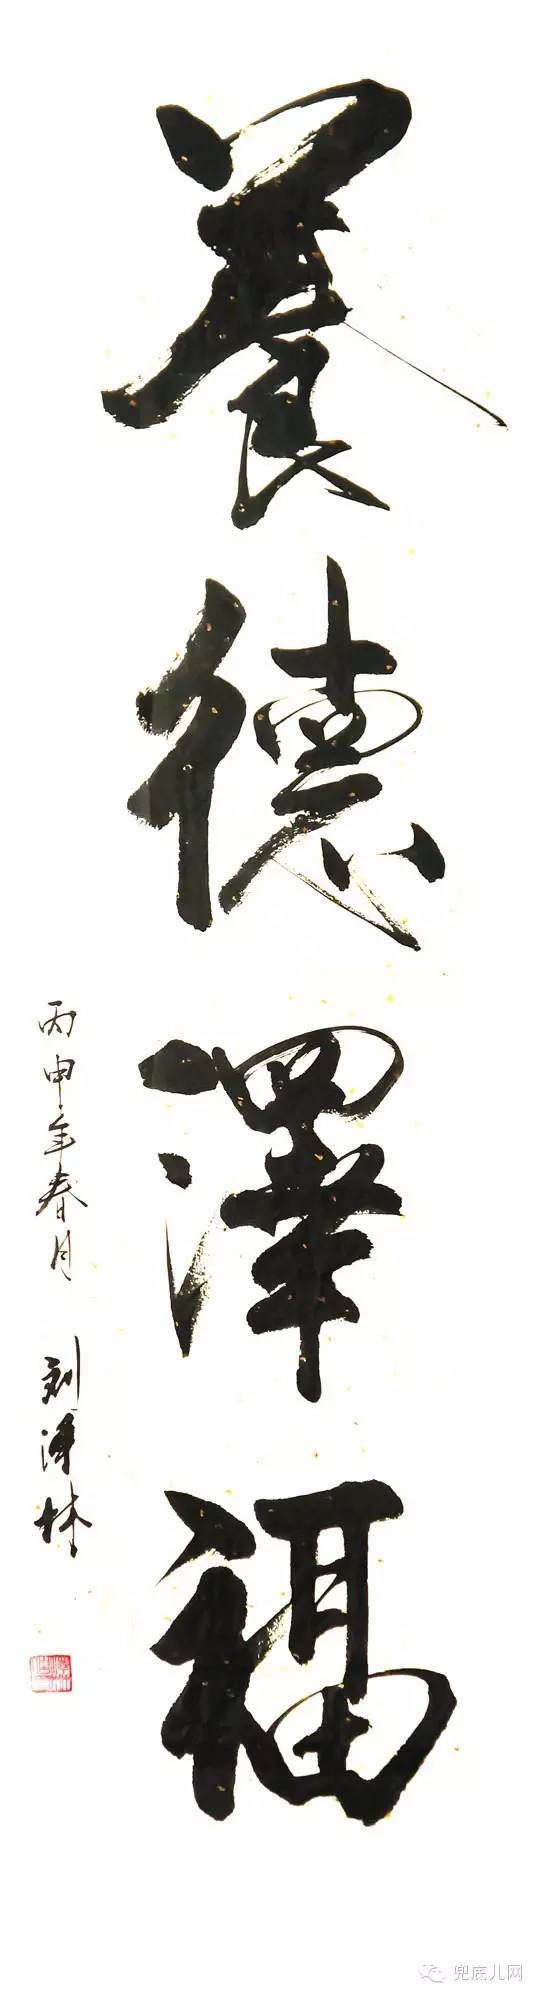 養德澤福
丙申年春月
刘
林
兜底儿网